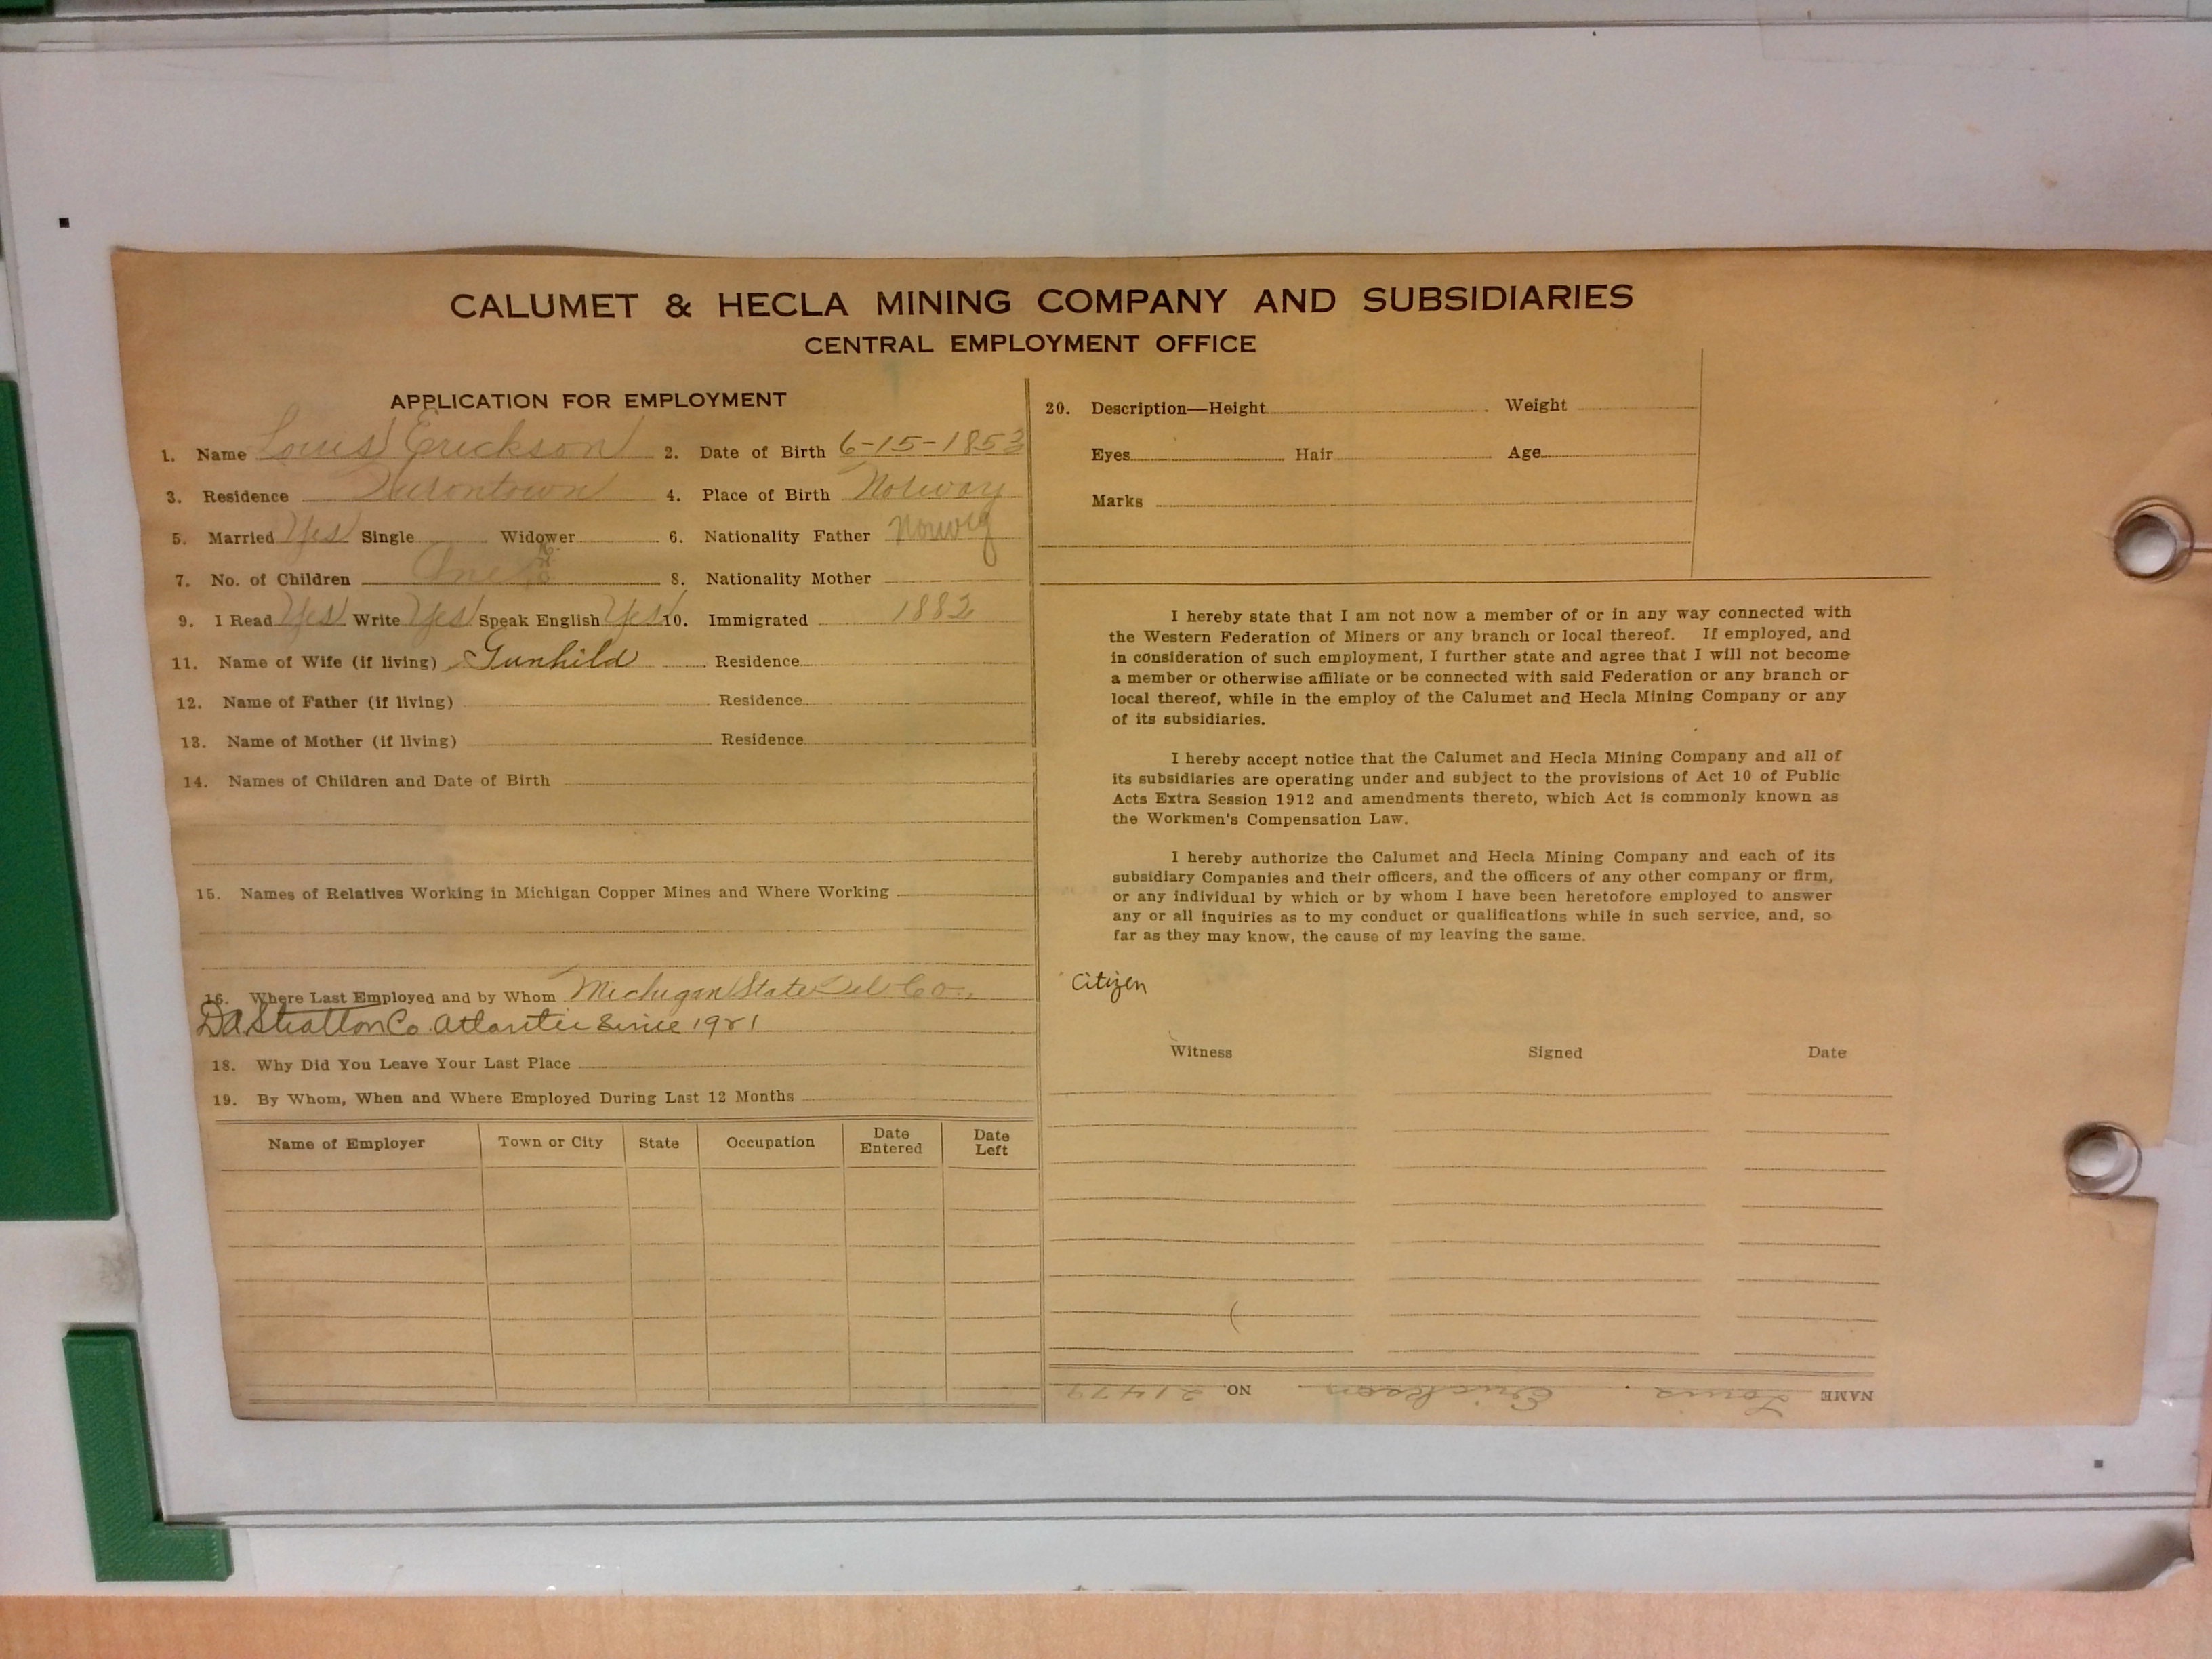 CALUMET & HECLA MINING COMPANY AND SUBSIDIARIES
CENTRAL EMPLOYMENT OFFICE
APPLICATION FOR EMPLOYMENT
1. Name Louis Erickson 2. Date of Birth 6-15-1853
3. Residence Hurontown 4. Place of Birth Norway
5. Married Yes Single Widower 6. Nationality Father Norweg
7. No. of Children One 8. Nationality Mother
9. I Read Yes Write Yes Speak English Yes 10. Immigrated 1882
11. Name of Wife (if living) Gunhild Residence
12. Name of Father (if living) Residence
13. Name of Mother (if living) Residence
14. Names of Children and Date of Birth
15. Names of Relatives Working in Michigan Copper Mines and Where Working
16. Where Last Employed and by Whom Michigan State Co.
DA Stratton Co. Atlantic Since 1921
18. Why Did You Leave Your Last Place
19. By Whom, When and Where Employed During Last 12 Months
Name of Employer Town or City State Occupation Date Entered Date Left
20. Description—Height Weight
Eyes Hair Age
Marks
I hereby state that I am not now a member of or in any way connected with
the Western Federation of Miners or any branch or local thereof. If employed, and
in consideration of such employment, I further state and agree that I will not become
a member or otherwise affiliate or be connected with said Federation or any branch or
local thereof, while in the employ of the Calumet and Hecla Mining Company or any
of its subsidiaries.
I hereby accept notice that the Calumet and Hecla Mining Company and all of
its subsidiaries are operating under and subject to the provisions of Act 10 of Public
Acts Extra Session 1912 and amendments thereto, which Act is commonly known as
the Workmen's Compensation Law.
I hereby authorize the Calumet and Hecla Mining Company and each of its
subsidiary Companies and their officers, and the officers of any other company or firm,
or any individual by which or by whom I have been heretofore employed to answer
any or all inquiries as to my conduct or qualifications while in such service, and, so
far as they may know, the cause of my leaving the same.
Citizen
Witness Signed Date
NAME Louis Erickson NO. 21479